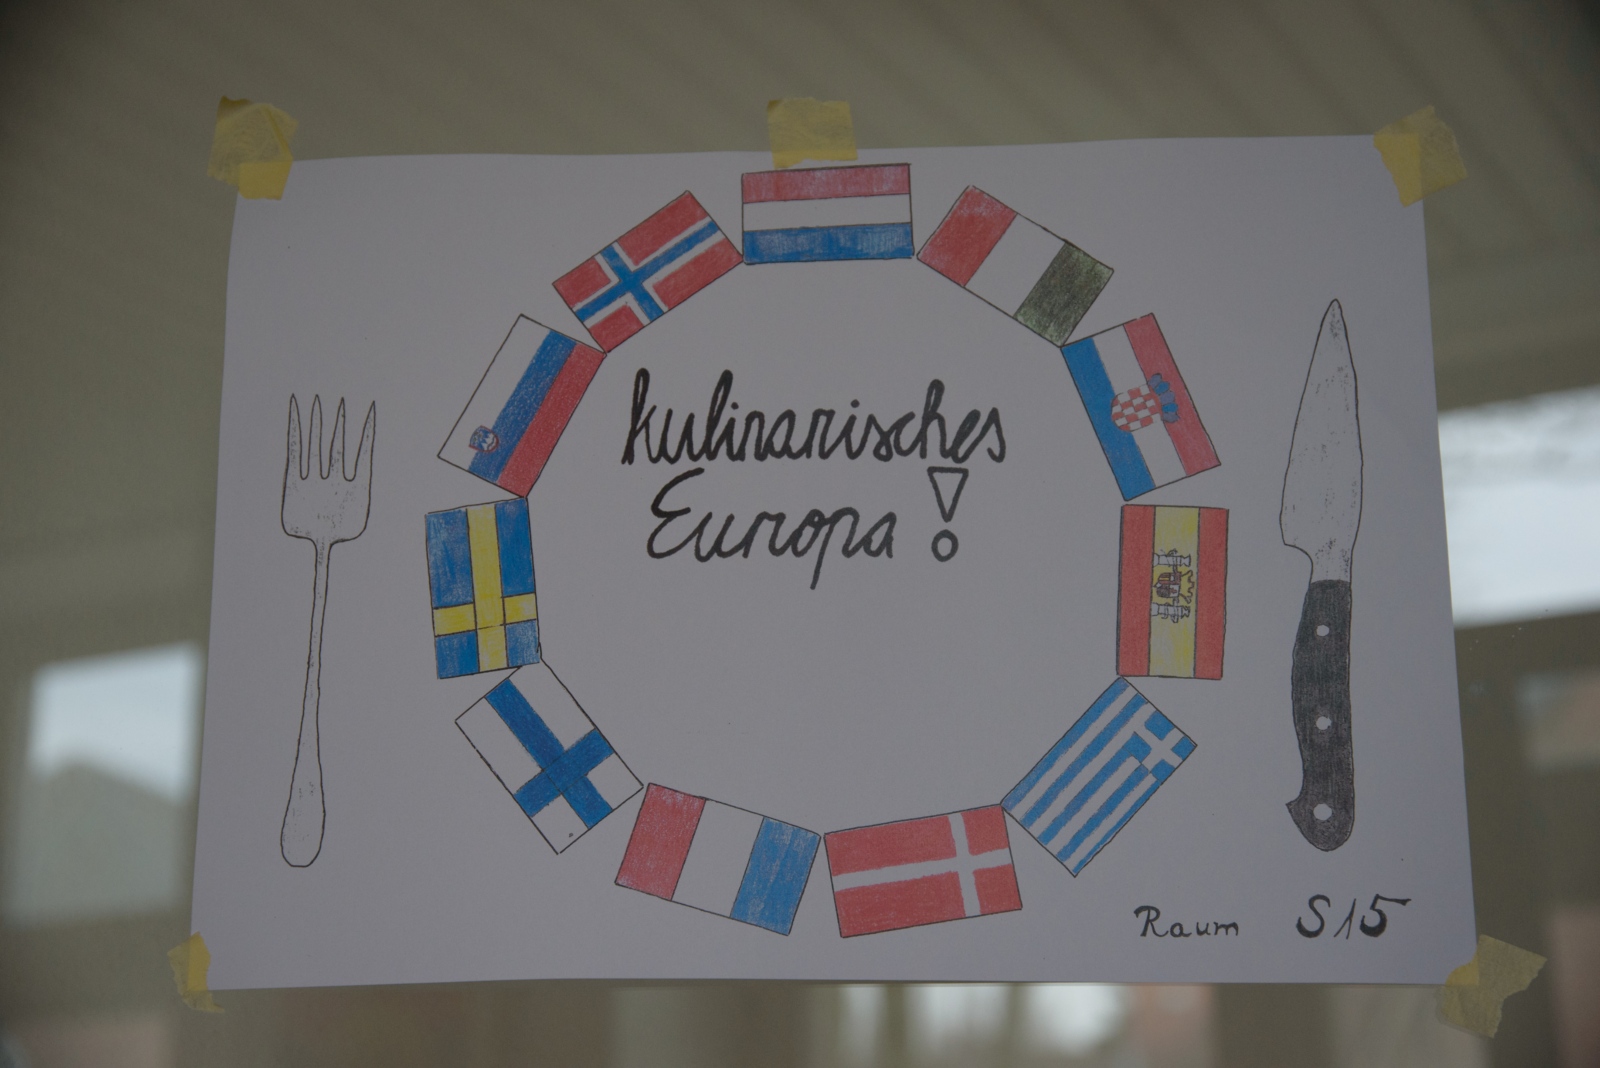 kulinarisches
Europa!
Raum S15